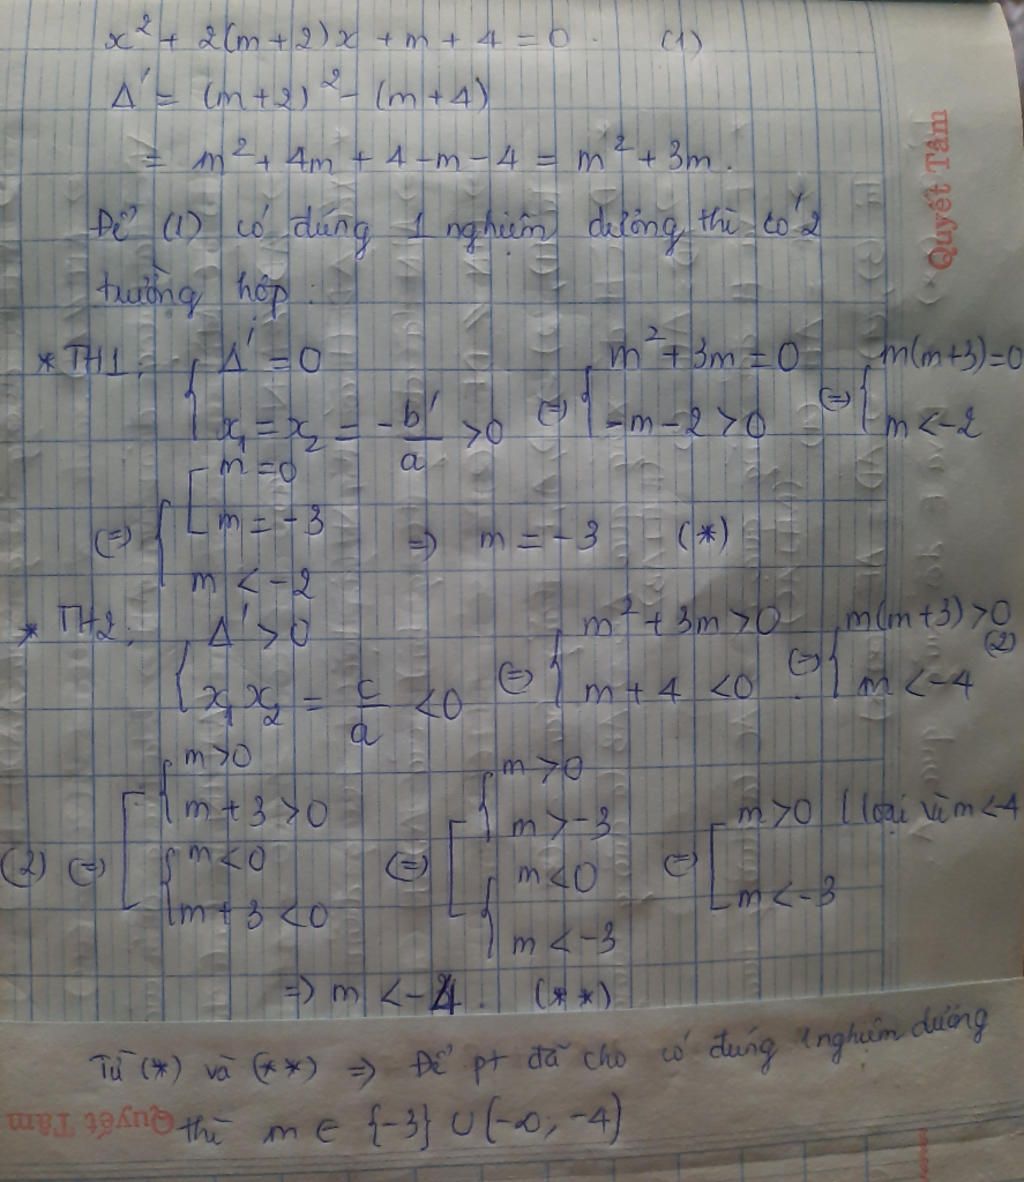 x² + 2(m+2)x + m + 4 = 0. (1)
Δ' = (m+2)² - (m+4)
= m² + 4m + 4 - m - 4 = m² + 3m.
Để (1) có đúng 1 nghiệm dương thì có 2
trường hợp:
* TH1: { Δ' = 0 ; x₁ = x₂ = -b'/a > 0 (=) { m² + 3m = 0 ; -m - 2 > 0 (=) { m(m+3) = 0 ; m < -2
(=) { [ m = 0 ; m = -3 ; m < -2 => m = -3 (*)
* TH2: { Δ' > 0 ; x₁x₂ = c/a < 0 (=) { m² + 3m > 0 ; m + 4 < 0 (=) { m(m+3) > 0 (2) ; m < -4
(2) (=) [ { m > 0 ; m + 3 > 0 ; { m < 0 ; m + 3 < 0 (=) [ { m > 0 ; m > -3 ; { m < 0 ; m < -3 (=) [ m > 0 (loại vì m < -4 ; m < -3
=> m < -4. (**)
Từ (*) và (**) => Để pt đã cho có đúng 1 nghiệm dương
thì m ∈ {-3} ∪ (-∞; -4)
Quyết Tâm
Quyết Tâm